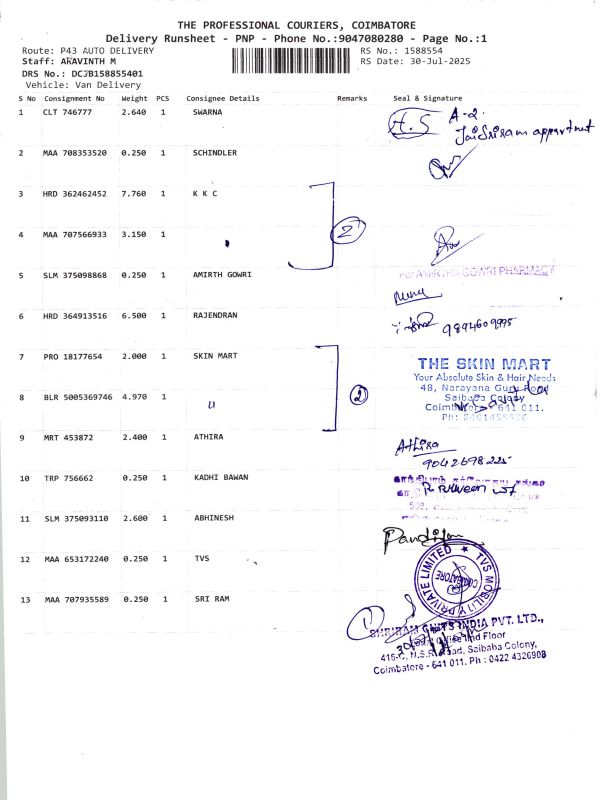 THE PROFESSIONAL COURIERS, COIMBATORE
Delivery Runsheet - PNP - Phone No.:9047080280 - Page No.:1
Route: P43 AUTO DELIVERY RS No.: 1588554
Staff: ARAVINTH M RS Date: 30-Jul-2025
DRS No.: DCJB158855401
Vehicle: Van Delivery
S No Consignment No Weight PCS Consignee Details Remarks Seal & Signature
1 CLT 746777 2.640 1 SWARNA H.S A-2
Jai Sriram appartment
2 MAA 708353520 0.250 1 SCHINDLER
3 HRD 362462452 7.760 1 K K C
4 MAA 707566933 3.150 1 " 2
5 SLM 375098868 0.250 1 AMIRTH GOWRI AMIRTHA GOWRI PHARMACY
6 HRD 364913516 6.500 1 RAJENDRAN 9894609995
7 PRO 18177654 2.000 1 SKIN MART THE SKIN MART
Your Absolute Skin & Hair Needs
48, Narayana Guru Road
Saibaba Colony
8 BLR 5005369746 4.970 1 " 2 Coimbatore - 641 011.
Ph:
9 MRT 453872 2.400 1 ATHIRA Athira
9042698225
10 TRP 756662 0.250 1 KADHI BAWAN
11 SLM 375093110 2.600 1 ABHINESH
12 MAA 653172240 0.250 1 TVS TVS MOBILITY PRIVATE LIMITED
COIMBATORE
13 MAA 707935589 0.250 1 SRI RAM 1
INDIA PVT. LTD.,
Floor
415-C, N.S.R. Road, Saibaba Colony,
Coimbatore - 641 011. Ph : 0422 4326908